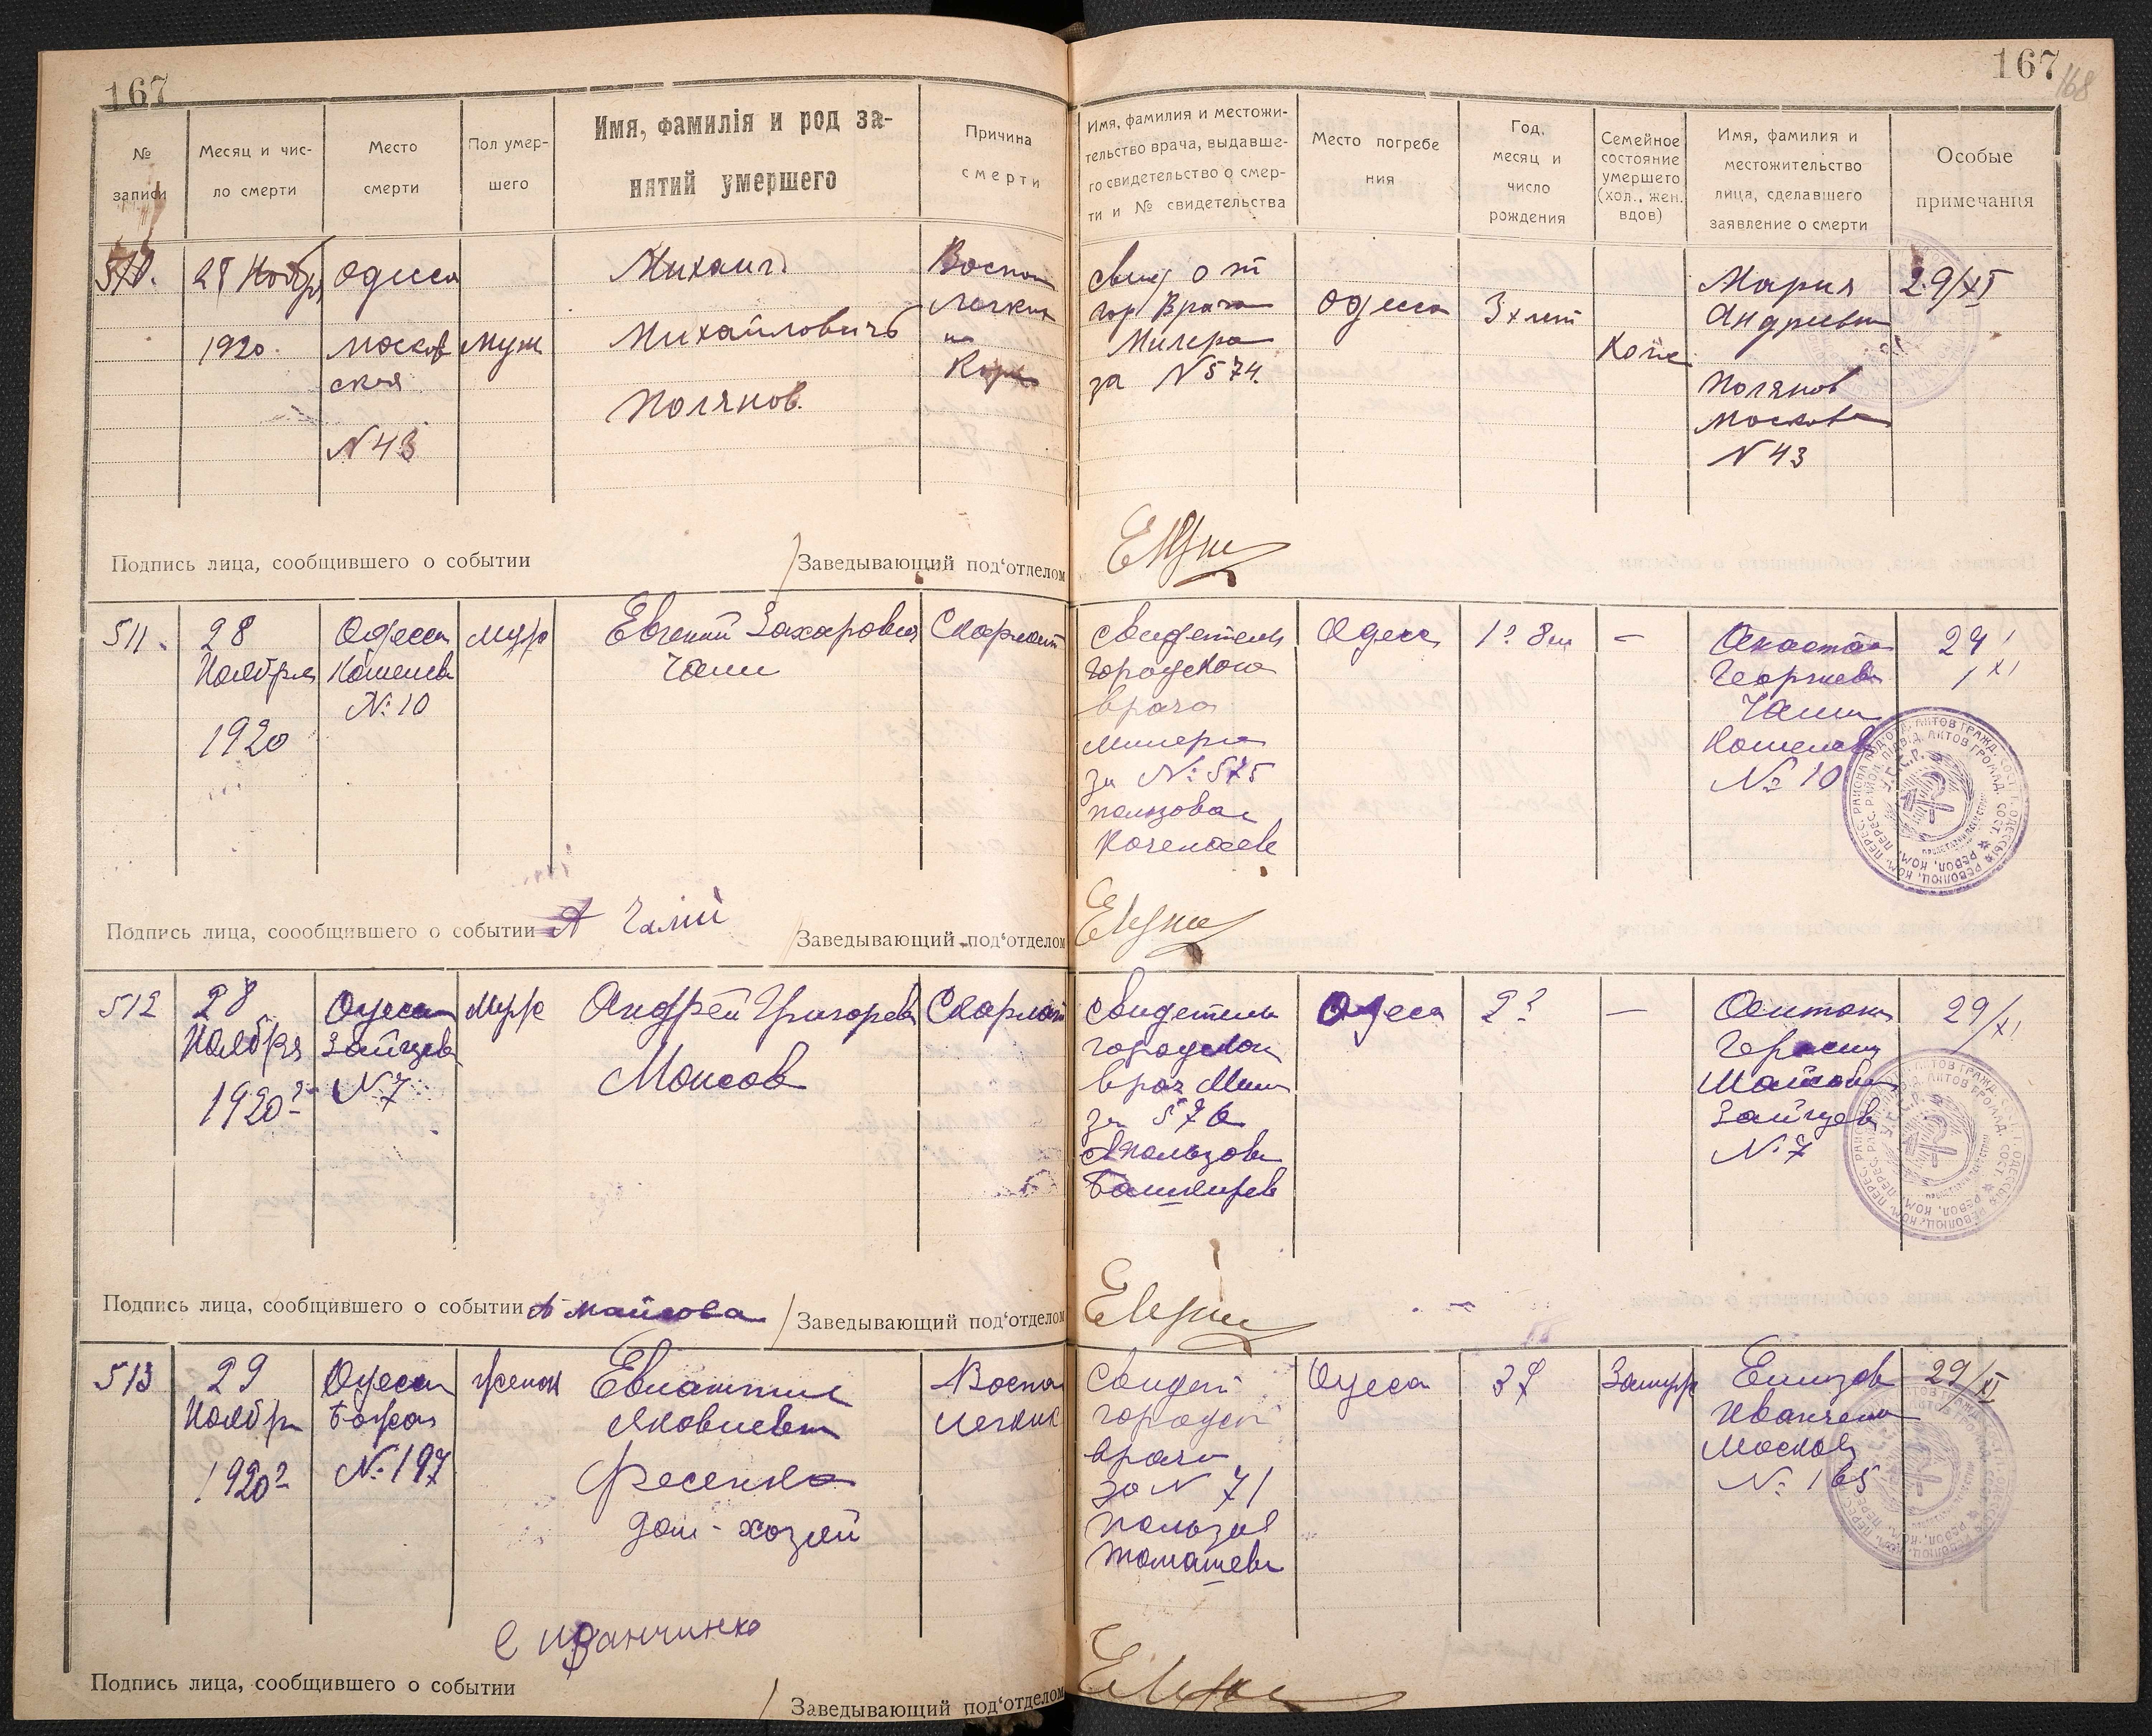 167
167
168
№
записи
Месяц и чис-
ло смерти
Место
смерти
Пол умер-
шего
Имя, фамилія и род за-
нятий умершего
Причина
смерти
Имя, фамилия и местожи-
тельство врача, выдавше-
го свидетельство о смер-
ти и № свидетельства
Место погребе
ния
Год,
месяц и
число
рождения
Семейное
состояние
умершего
(хол., жен.
вдов)
Имя, фамилия и
местожительство
лица, сделавшего
заявление о смерти
Особые
примечания
510.
28 Ноябр
1920.
Одесса
москов
ская
N 43
муж
Михаил
Михайловичъ
Поляков.
Воспал
Легких
свид от
гор Врача
Милера
за N 574.
Одесса
3х лет
Мария
Андреевна
Поляков
Москов
N 43
29/XI
Подпись лица, сообщившего о событии
Заведывающий под‘отделом
511.
28
Ноября
1920
Одесса
Кошелев
№ 10
муж
Евгений Захарович
Чали
Скарлат
Свидетель
городского
врача
Милера
за №: 575
пользовал
Одесса
1г 8м
—
Анаста
Георгиев
Чали
Кошелев
№ 10
29/XI
Подпись лица, соообщившего о событии
А Чалий
Заведывающий под‘отделом
512
28
Ноября
1920г
Одесса
Зайцев
№ 7
Муж
Андрей Григорьев
Моисов
Скарлат
Свидетель
городской
врач Мил
за 576
пользов
Башкирев
Одесса
2г
—
Герасим
Майсов
Зайцев
№ 7
29/XI
Подпись лица, сообщившего о событии
А Майсова
Заведывающий под‘отделом
513
29
Ноябр
1920г
Одесса
№ 197
женск
Евлампия
Яковлевна
Фесенко
дом-хозяй
Воспал
легких
Свидет
городск
врача
за N 71
пользов
Томашев
Одесса
37
Замуж
Елизов
Иванченко
Москов
№ 165
29/XI
С Иванчинко
Подпись лица, сообщившего о событии
Заведывающий под‘отделом